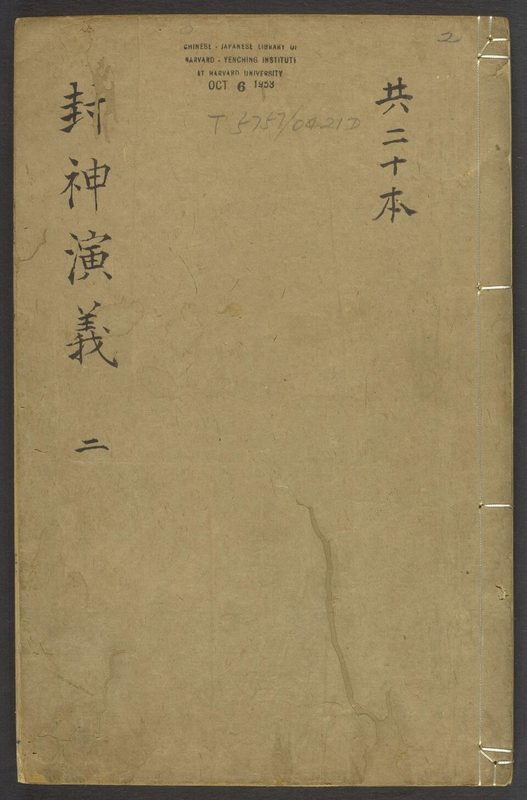 2
CHINESE - JAPANESE LIBRARY OF
HARVARD - YENCHING INSTITUTE
AT HARVARD UNIVERSITY
OCT 6 1953
共二十本
封神演義 二